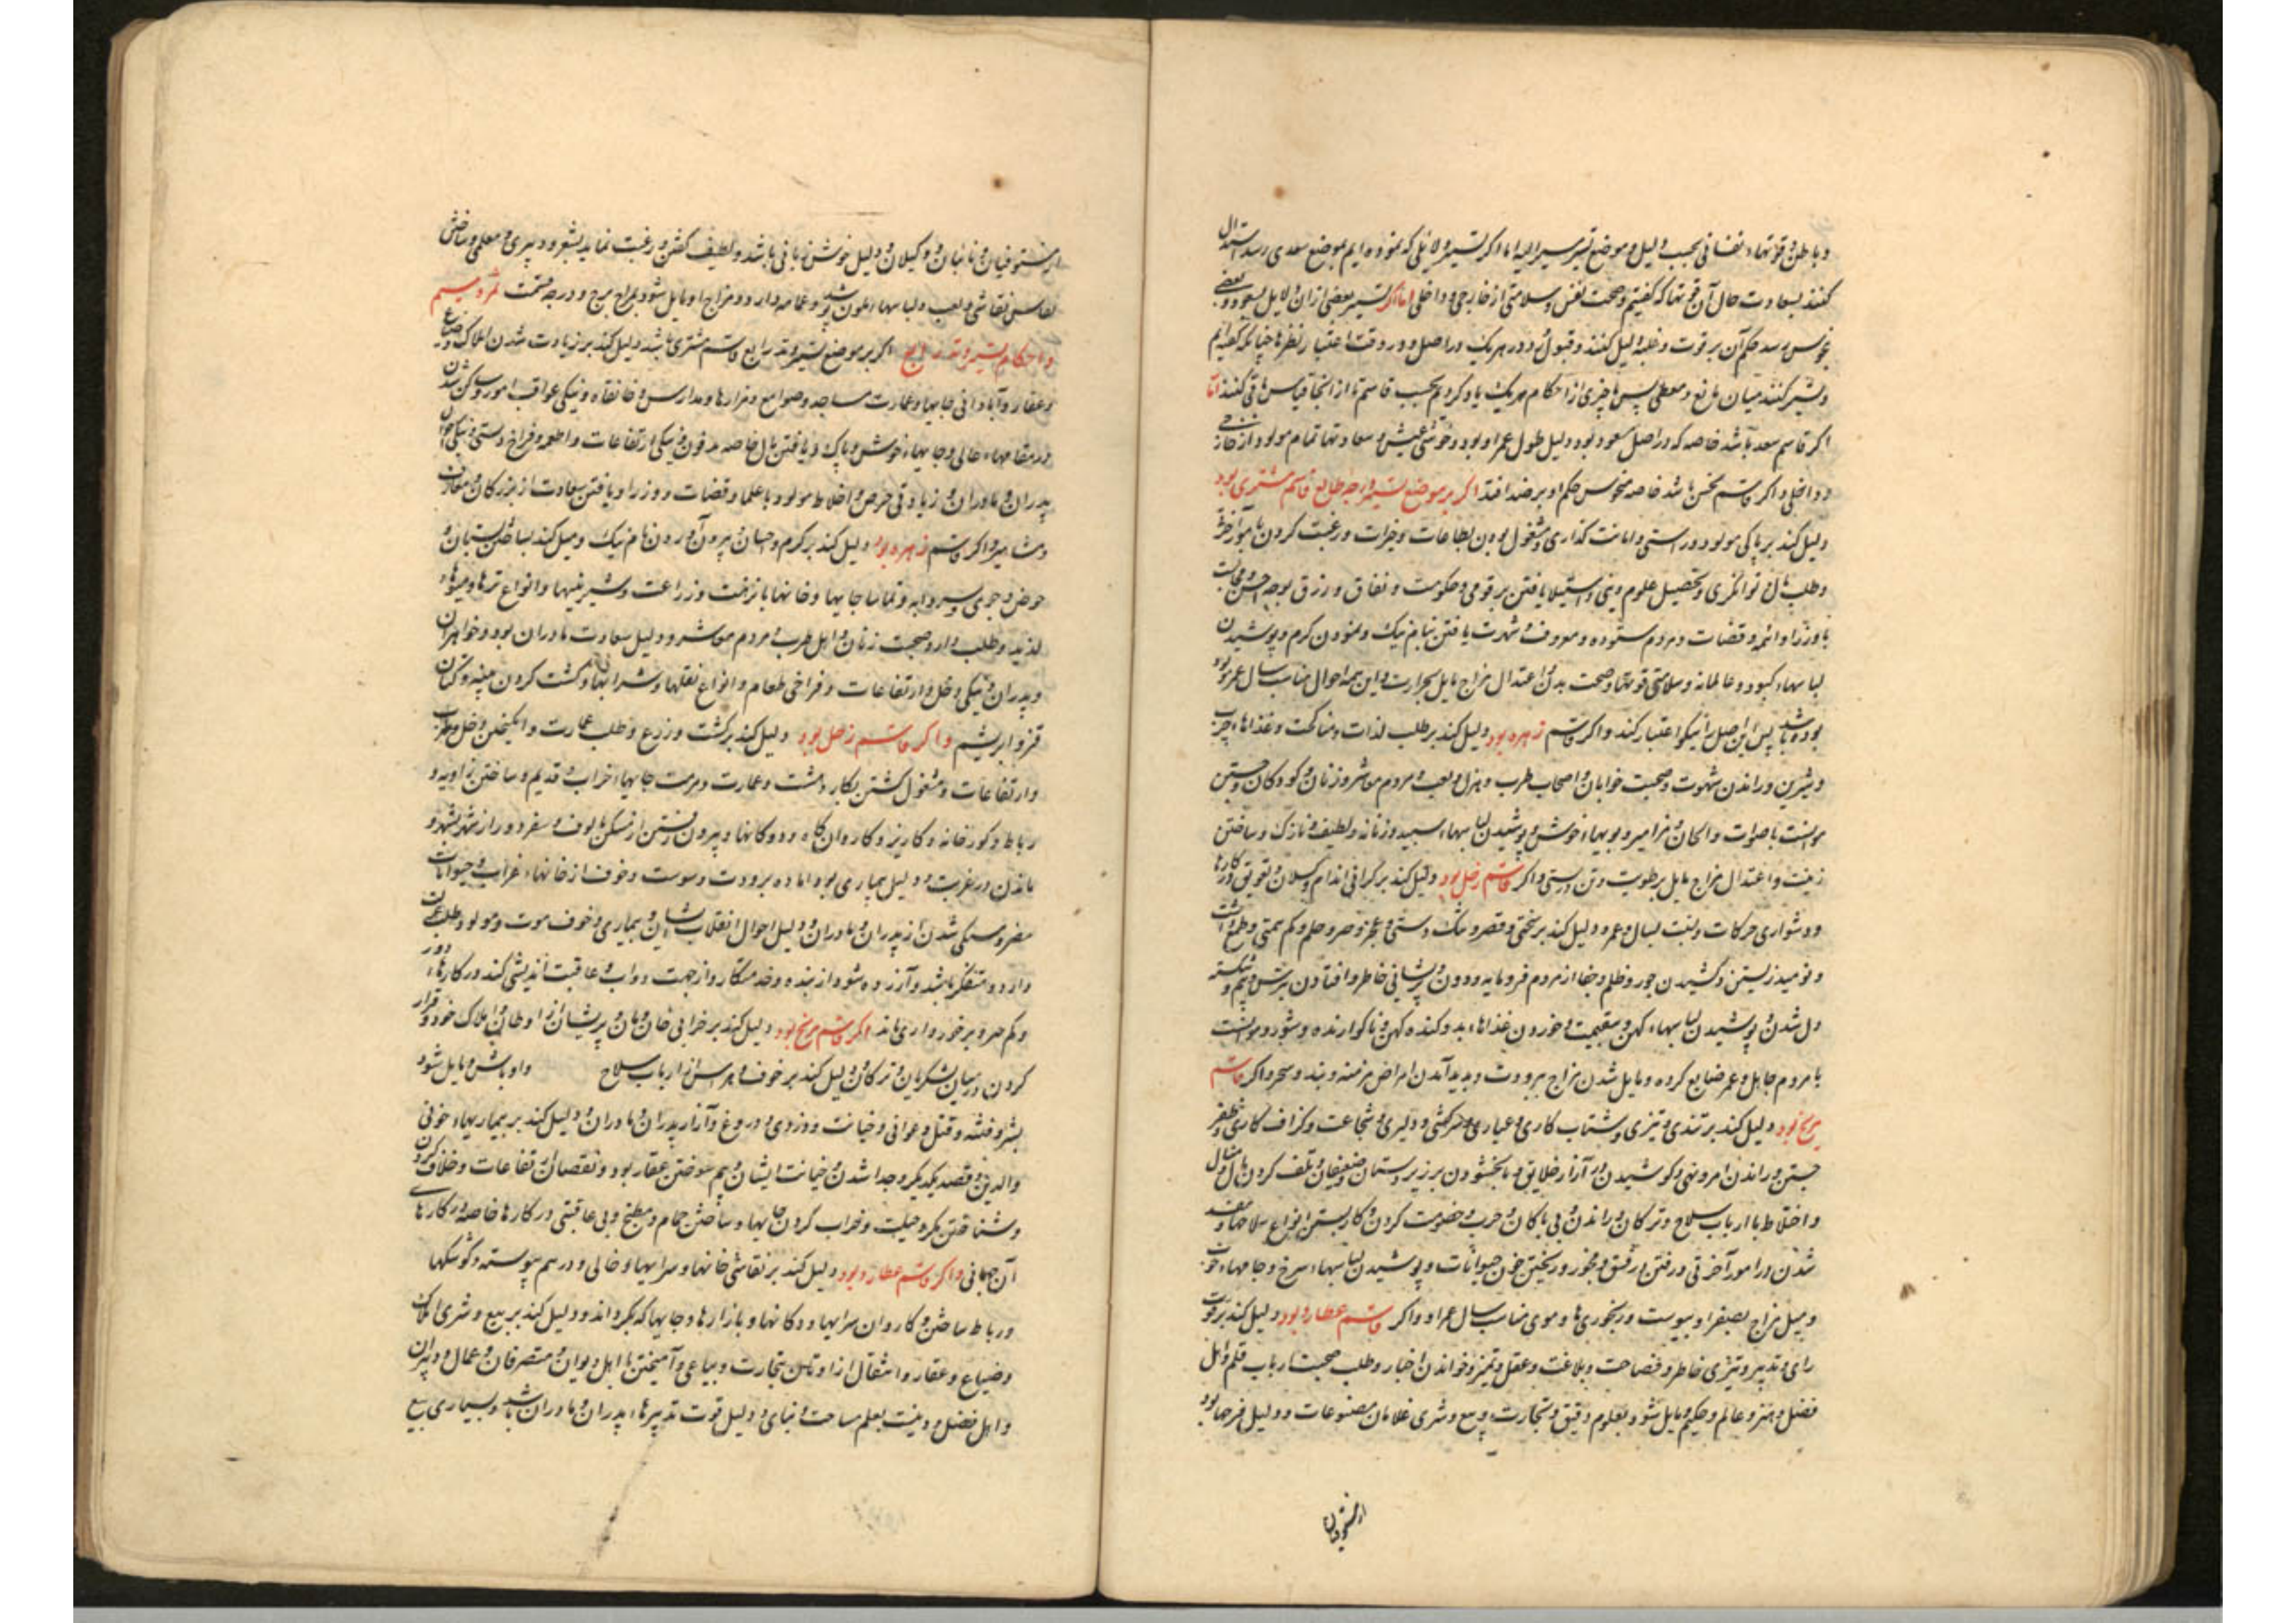 و باطن و قوتهاء نفسانی بحسب دلیل و موضع تسیر سیر الیه اما اکر تسیر دلایلی که نموده ایم بموضع سعدی رسد استدلال
کنند بسعادت حال آن قوتها که کفتیم و صحت نفس و سلامتی از خارجی و داخلی اما اکر تسیر بعضی ازان دلایل بسعود و بعضی
بنحوس رسد حکم آن بر قوت و غلبه دلیل کنند و قبول و رد هر یک در اصل و در وقت اعتبار نظرها چنانکه کفته ایم
میان مانع و معطی پس ما چیزی از احکام هر یک یاد کردیم بحسب قاسم تا از انجا قیاس باقی کنند اما
اکر قاسم سعد باشد خاصه که در اصل سعود بود دلیل طول عمر او بود و خوشی عیش و سعادتها تمام مولود از خارجی
و داخلی و اکر قاسم نحس باشد خاصه منحوس حکم او بر ضد افتد اکر بر موضع تسیر درجه طالع قاسم مشتری بود
دلیل کند بر پاکی مولود و راستی و امانت کذاری و مشغول بودن بطاعات و خیرات و رغبت کردن بامور آخرت
و طلب مال و توانکری و تحصیل علوم دینی و استیلا یافتن بر قومی و حکومت و نفاق و رزق بوجه احسن و مجالست
با وزرا و ائمه و قضات و مردم ستوده و معروف و شهرت یافتن بنام نیک و نمودن کرم و پوشیدن
لباسهاء کبود و عالمانه و سلامتی قوتها و صحت بدن و اعتدال مزاج مایل بحرارت و این همه احوال مناسب سال عمر بود
بوده باشد پس این اصل را نیکو اعتبار کند و اکر قاسم زهره بود دلیل کند بر طلب لذات و مناکحت و غذاهاء چرب
و شیرین و راندن شهوت و صحبت خوبان و اصحاب طرب و هزل و لعب و مردم معاشر و زنان و کودکان و جستن
موانست باصوات و الحان و مزامیر و بویهاء خوش و پوشیدن لباسهاء سپید و زنانه و لطیف و نازک و ساختن
زینت و اعتدال مزاج مایل برطوبت و تن درستی و اکر قاسم زحل بود دلیل کند بر کرانی اندام و کسلان و تعویق در کارها
و دشواری حرکات و نسبت بسال و عمر و دلیل کند بر سختی و قصر و تنک دستی و عجز و حلم و کم همتی و طمع داشتن
و نومید زیستن و کشیدن جور و ظلم و جفا از مردم فرومایه و دون و پریشانی خاطر و افتادن بترس و بیم و شکسته
دل شدن و پوشیدن لباسهاء کهن و بی قیمت و خوردن غذاهاء بد و کنده کهن و ناکوارنده و شور و موانست
با مردم جاهل و عمر ضایع کرده و مایل شدن مزاج ببرودت و پدید آمدن امراض مزمنه و بند و سحر و اکر قاسم
مریخ بود دلیل کند بر تندی و تیزی و شتاب کاری و عیاری و سرکشی و دلیری و شجاعت و کزاف کاری و ظفر
جستن و راندن امر و نهی و کوشیدن در آزار خلایق و نابخشودن بر زیردستان و ضعیفان و تلف کردن مال و منال
و اختلاط با ارباب سلاح و ترکان و راندن و بی باکان و حرب و خصومت کردن و کار بستن انواع سلاحها و مفسد
شدن در امور آخرتی و رفتن در فسق و فجور و ریختن خون حیوانات و پوشیدن لباسهاء سرخ و جامهاء حرب
و میل مزاج بصفرا و یبوست و رنجوری ها و موی مناسب سال عمر او و اکر قاسم عطارد بود دلیل کند بر قوت
رای و تدبیر و تیزی خاطر و فصاحت و بلاغت و عقل و تمیز و خواندن اخبار و طلب صحبت ارباب قلم و اهل
فضل و هنر و عالم و حکیم و مایل شود بعلوم دقیق و تجارت و بیع و شری غلامان مصنوعات و دلیل فرحها بود
از مستوفیان
از مستوفیان و نائبان و وکیلان و دلیل خوش زبانی باشد و لطیف کفتن و رغبت نماید بشعر و دبیری و معلمی و ساختن
نقاشی و لعب و لباسهاء ملون پوشد و عمامه دارد و مزاج او مایل شود بمزاج برج و درجه قسمت ثمره سیم
در احکام تسیر وتد رابع اکر بر موضع تسیر وتد رابع قاسم مشتری باشد دلیل کند بر زیادت شدن املاک و ضیاع
و عقار و آبادانی جایها و عمارت مساجد و صوامع و مزارها و مدارس و خانقاه و نیکی عواقب امور و ساکن شدن
در مقامهاء عالی و جایهاء خوش و پاک و یافتن مال خاصه مدفون و نیکی ارتفاعات و اطعمه و فراخ دستی و نیکی احوال
پدران و مادران و زیادتی حرص و اختلاط مولود با علما و قضات و وزرا و یافتن سعادت از بزرکان و معارف
و مشاهیر و اکر قاسم زهره بود دلیل کند بر کرم و احسان و بیرون آوردن نام نیک و میل کند بساختن بستان و
حوض و جوی و سردابه و تماشا جایها و خانهها با نزهت و زراعت و شیرینیها و انواع ترها و میوهاء
لذیذ و طلب دارد صحبت زنان و اهل طرب و مردم معاشر و دلیل سعادت مادران بود و خواهران
و پدران و نیکی دخل و ارتفاعات و فراخی طعام و انواع نقلها و شرابها و کشت کردن پنبه و کتان
و قز و ابریشم و اکر قاسم زحل بود دلیل کند بر کشت و زرع و طلب عمارت و انکیختن دخل و
و ارتفاعات و مشغول کشتن بکار دشت و عمارت و مرمت جایهاء خراب و قدیم و ساختن زاویه و
رباط و کورخانه و کاریز و کاروان کاه و دوکانها و بیرون رفتن از مسکن مالوف و سفر دور از شهر بشهر و
ماندن در غربت و دلیل بیماری بود از ماده برودت و یبوست و خوف از خانهاء خراب و حیوانات
مضر و سبکی شدن از پدران و مادران و دلیل احوال انقلاب ایشان و بیماری و خوف موت و مولود طلب عمارت
دارد و متفکر باشد و آزرده شود از بنده و خدمتکار و از جهت دواب و عاقبت اندیشی کند در کارهاء دور
و کم صبر و برخورداری ماند اکر قاسم مریخ بود دلیل کند بر خرابی خان و مان و پریشانی از اوطان و املاک خود و قرار
کردن در میان لشکریان و ترکان و دلیل کند بر خوف و هراس از ارباب سلاح و اوباش و مایل شود
بشر و فتنه و قتل و عوانی و خیانت و دزدی و دروغ و آزار پدران و مادران و دلیل کند بر بیماریهاء خونی
والدین و قصد یکدیکر و جدا شدن و خیانت ایشان و بیم سوختن عقار بود و نقصان ارتفاعات و خلاف کردن
و شناختن مکر و حیلت و خراب کردن جایها و ساختن حمام و مطبخ و بی عاقبتی در کارها خاصه در کارهاء
آن جهانی و اکر قاسم عطارد بود دلیل کند بر نقاشی خانها و سرایها و خالی و در هم پیوسته و کوشکها
و رباط ساختن و کاروان سرایها و دکانها و بازارها و جایها که بکرو اند و دلیل کند بر بیع و شری املاک
و ضیاع و عقار و انتقال از اوطان بتجارت و بیاعی و آمیختن با اهل دیوان و متصرفان و عمال و دبیران
و اهل فضل و رغبت بعلم مساحت و بنایی و دلیل قوت تدبیرهاء پدران و مادران باشد و بسیاری بیع